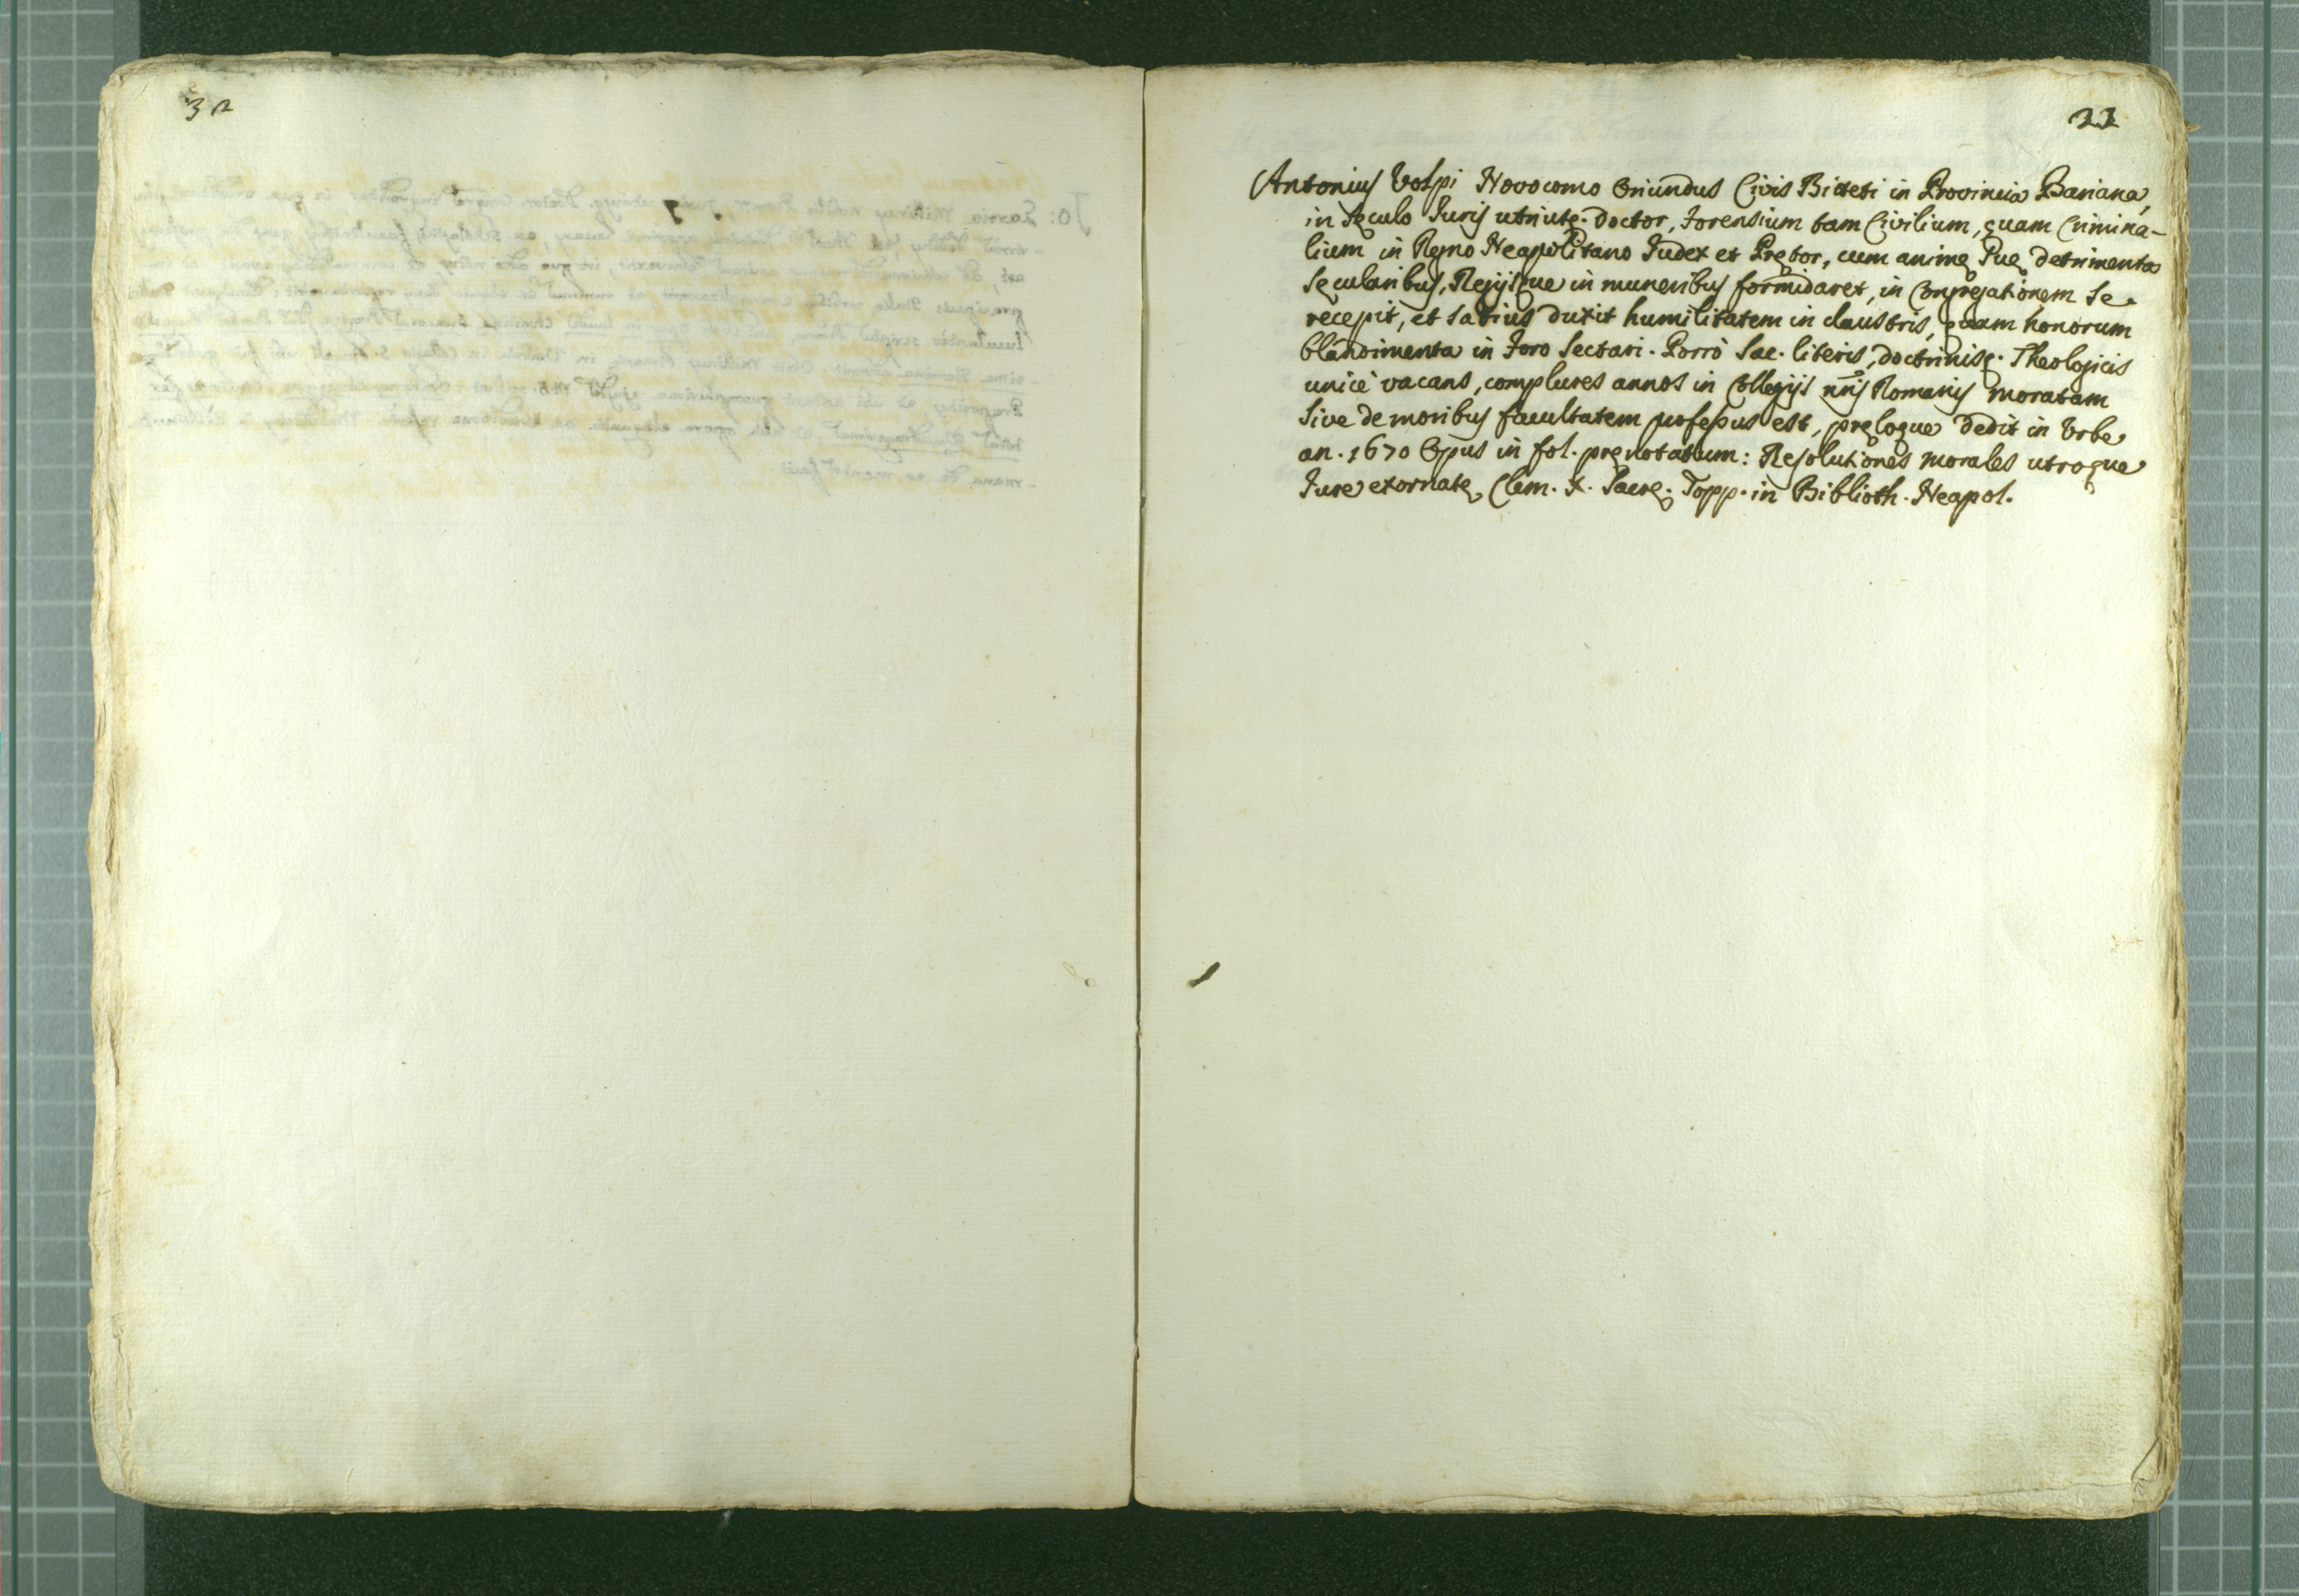 32
33
Antonius Volpi Novocomo Oriundus Civis Bitteti in Provincia Bariana,
in sęculo Juris utriusq. Doctor, Forensium tam Civilium, quam Crimina-
lium in Regno Neapolitano Judex et Pretor, cum animę suę detrimenta
sęcularibus, Regijsque in muneribus formidaret, in Congregationem se
recepit, et satius duxit humilitatem in claustris, quam honorum
blandimenta in Foro sectari. Porrò Sac. literis, doctrinisq. Theologicis
unicè vacans, complures annos in Collegijs nris Romanis moralem
sive de moribus facultatem professus est, pręloque dedit in Urbe
an. 1670 Opus in fol. prenotatum: Resolutiones morales utroque
Jure exornatę Clem. X. Sacrę. Topp. in Biblioth. Neapol.